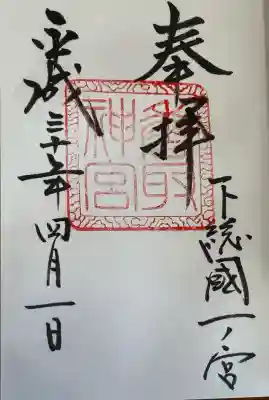 奉拝
下総國一ノ宮
香取神宮
平成三十一年四月一日